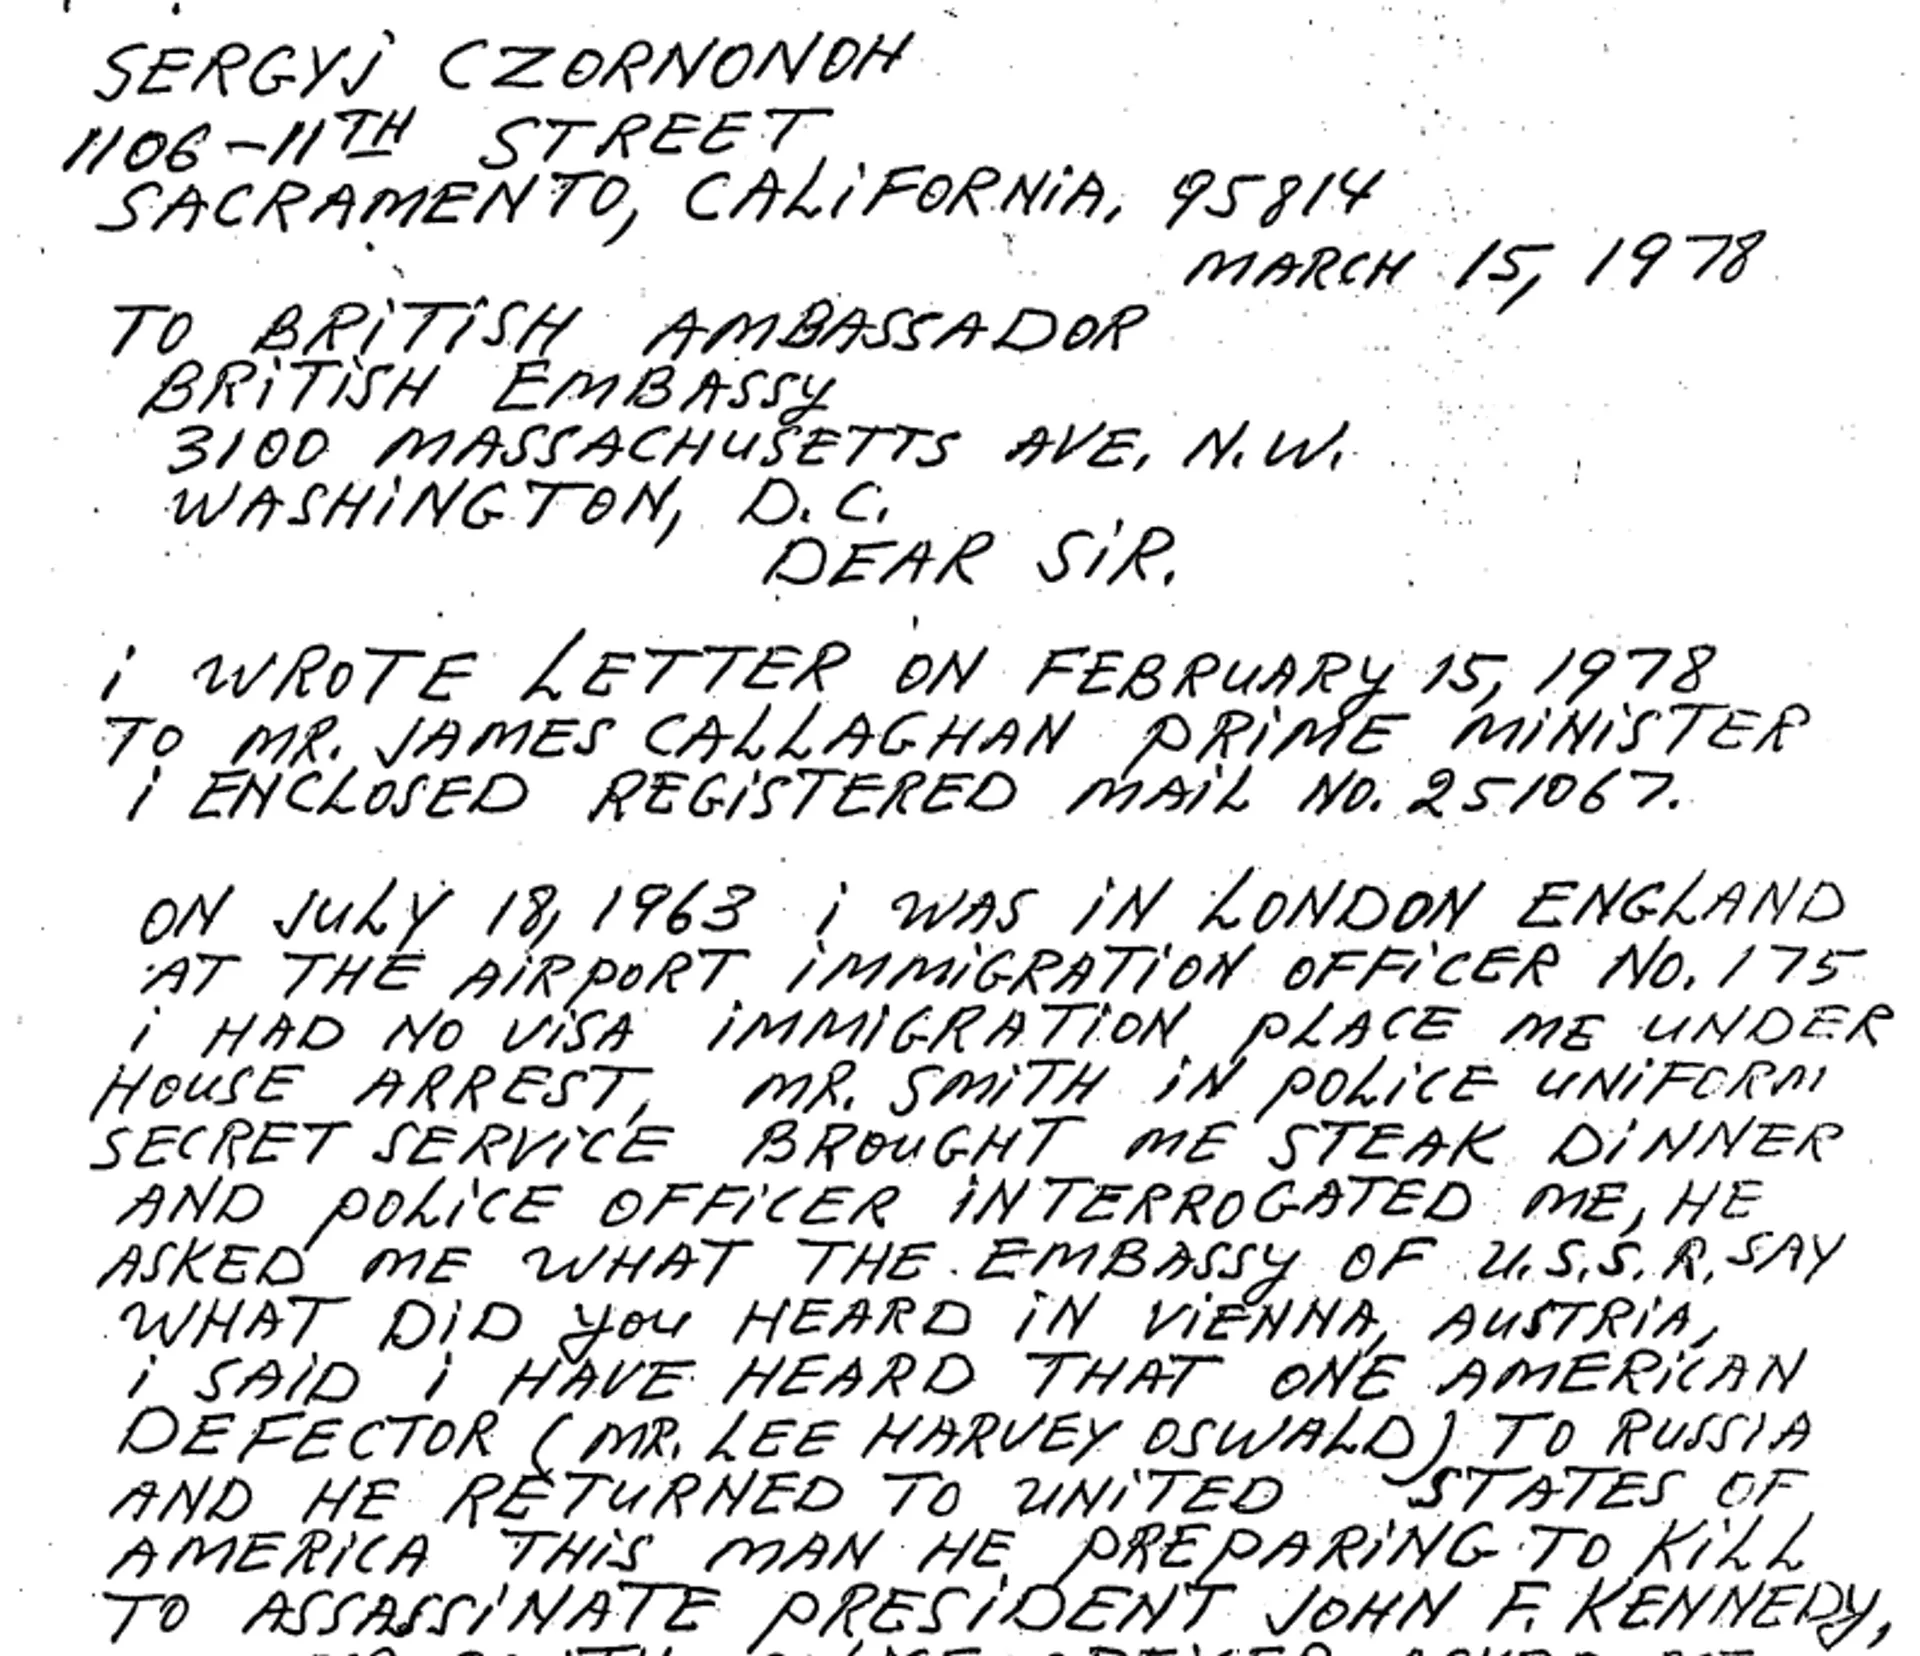 SERGYJ CZORNONOH
1106-11TH STREET
SACRAMENTO, CALIFORNIA, 95814
MARCH 15, 1978
TO BRITISH AMBASSADOR
BRITISH EMBASSY
3100 MASSACHUSETTS AVE, N.W.
WASHINGTON, D.C.
DEAR SIR.
I WROTE LETTER ON FEBRUARY 15, 1978
TO MR. JAMES CALLAGHAN PRIME MINISTER
I ENCLOSED REGISTERED MAIL NO. 251067.
ON JULY 18, 1963 I WAS IN LONDON ENGLAND
AT THE AIRPORT IMMIGRATION OFFICER NO. 175
I HAD NO VISA IMMIGRATION PLACE ME UNDER
HOUSE ARREST, MR. SMITH IN POLICE UNIFORM
SECRET SERVICE BROUGHT ME STEAK DINNER
AND POLICE OFFICER INTERROGATED ME, HE
ASKED ME WHAT THE EMBASSY OF U.S.S.R. SAY
WHAT DID YOU HEARD IN VIENNA, AUSTRIA,
I SAID I HAVE HEARD THAT ONE AMERICAN
DEFECTOR (MR. LEE HARVEY OSWALD) TO RUSSIA
AND HE RETURNED TO UNITED STATES OF
AMERICA THIS MAN HE PREPARING TO KILL
TO ASSASSINATE PRESIDENT JOHN F. KENNEDY,